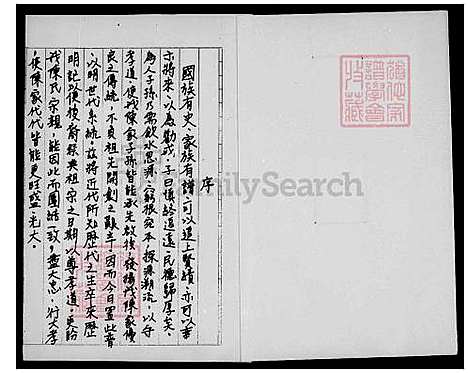 序
國族有史、家族有譜、可以追上賢蹟、亦可以章
示將來、以為勸戒、子曰慎終追遠、民德歸厚矣。
為人子孫乃需飲水思源、窮根究本、探源溯流、以守
孝道、使我陳家子孫皆能承先啟後、發揚我陳家優
良之傳統、不負祖先開創之艱辛、因而今日置此書
以明世代系統、茲將近代所知歷代之生卒來歷
明記以便後裔祭奠祖宗之日期以尊孝道、更盼
我陳氏宗親、能因此而團結一致、盡大忠、行大孝
、使陳家代代皆能更旺盛光大。
FamilySearch